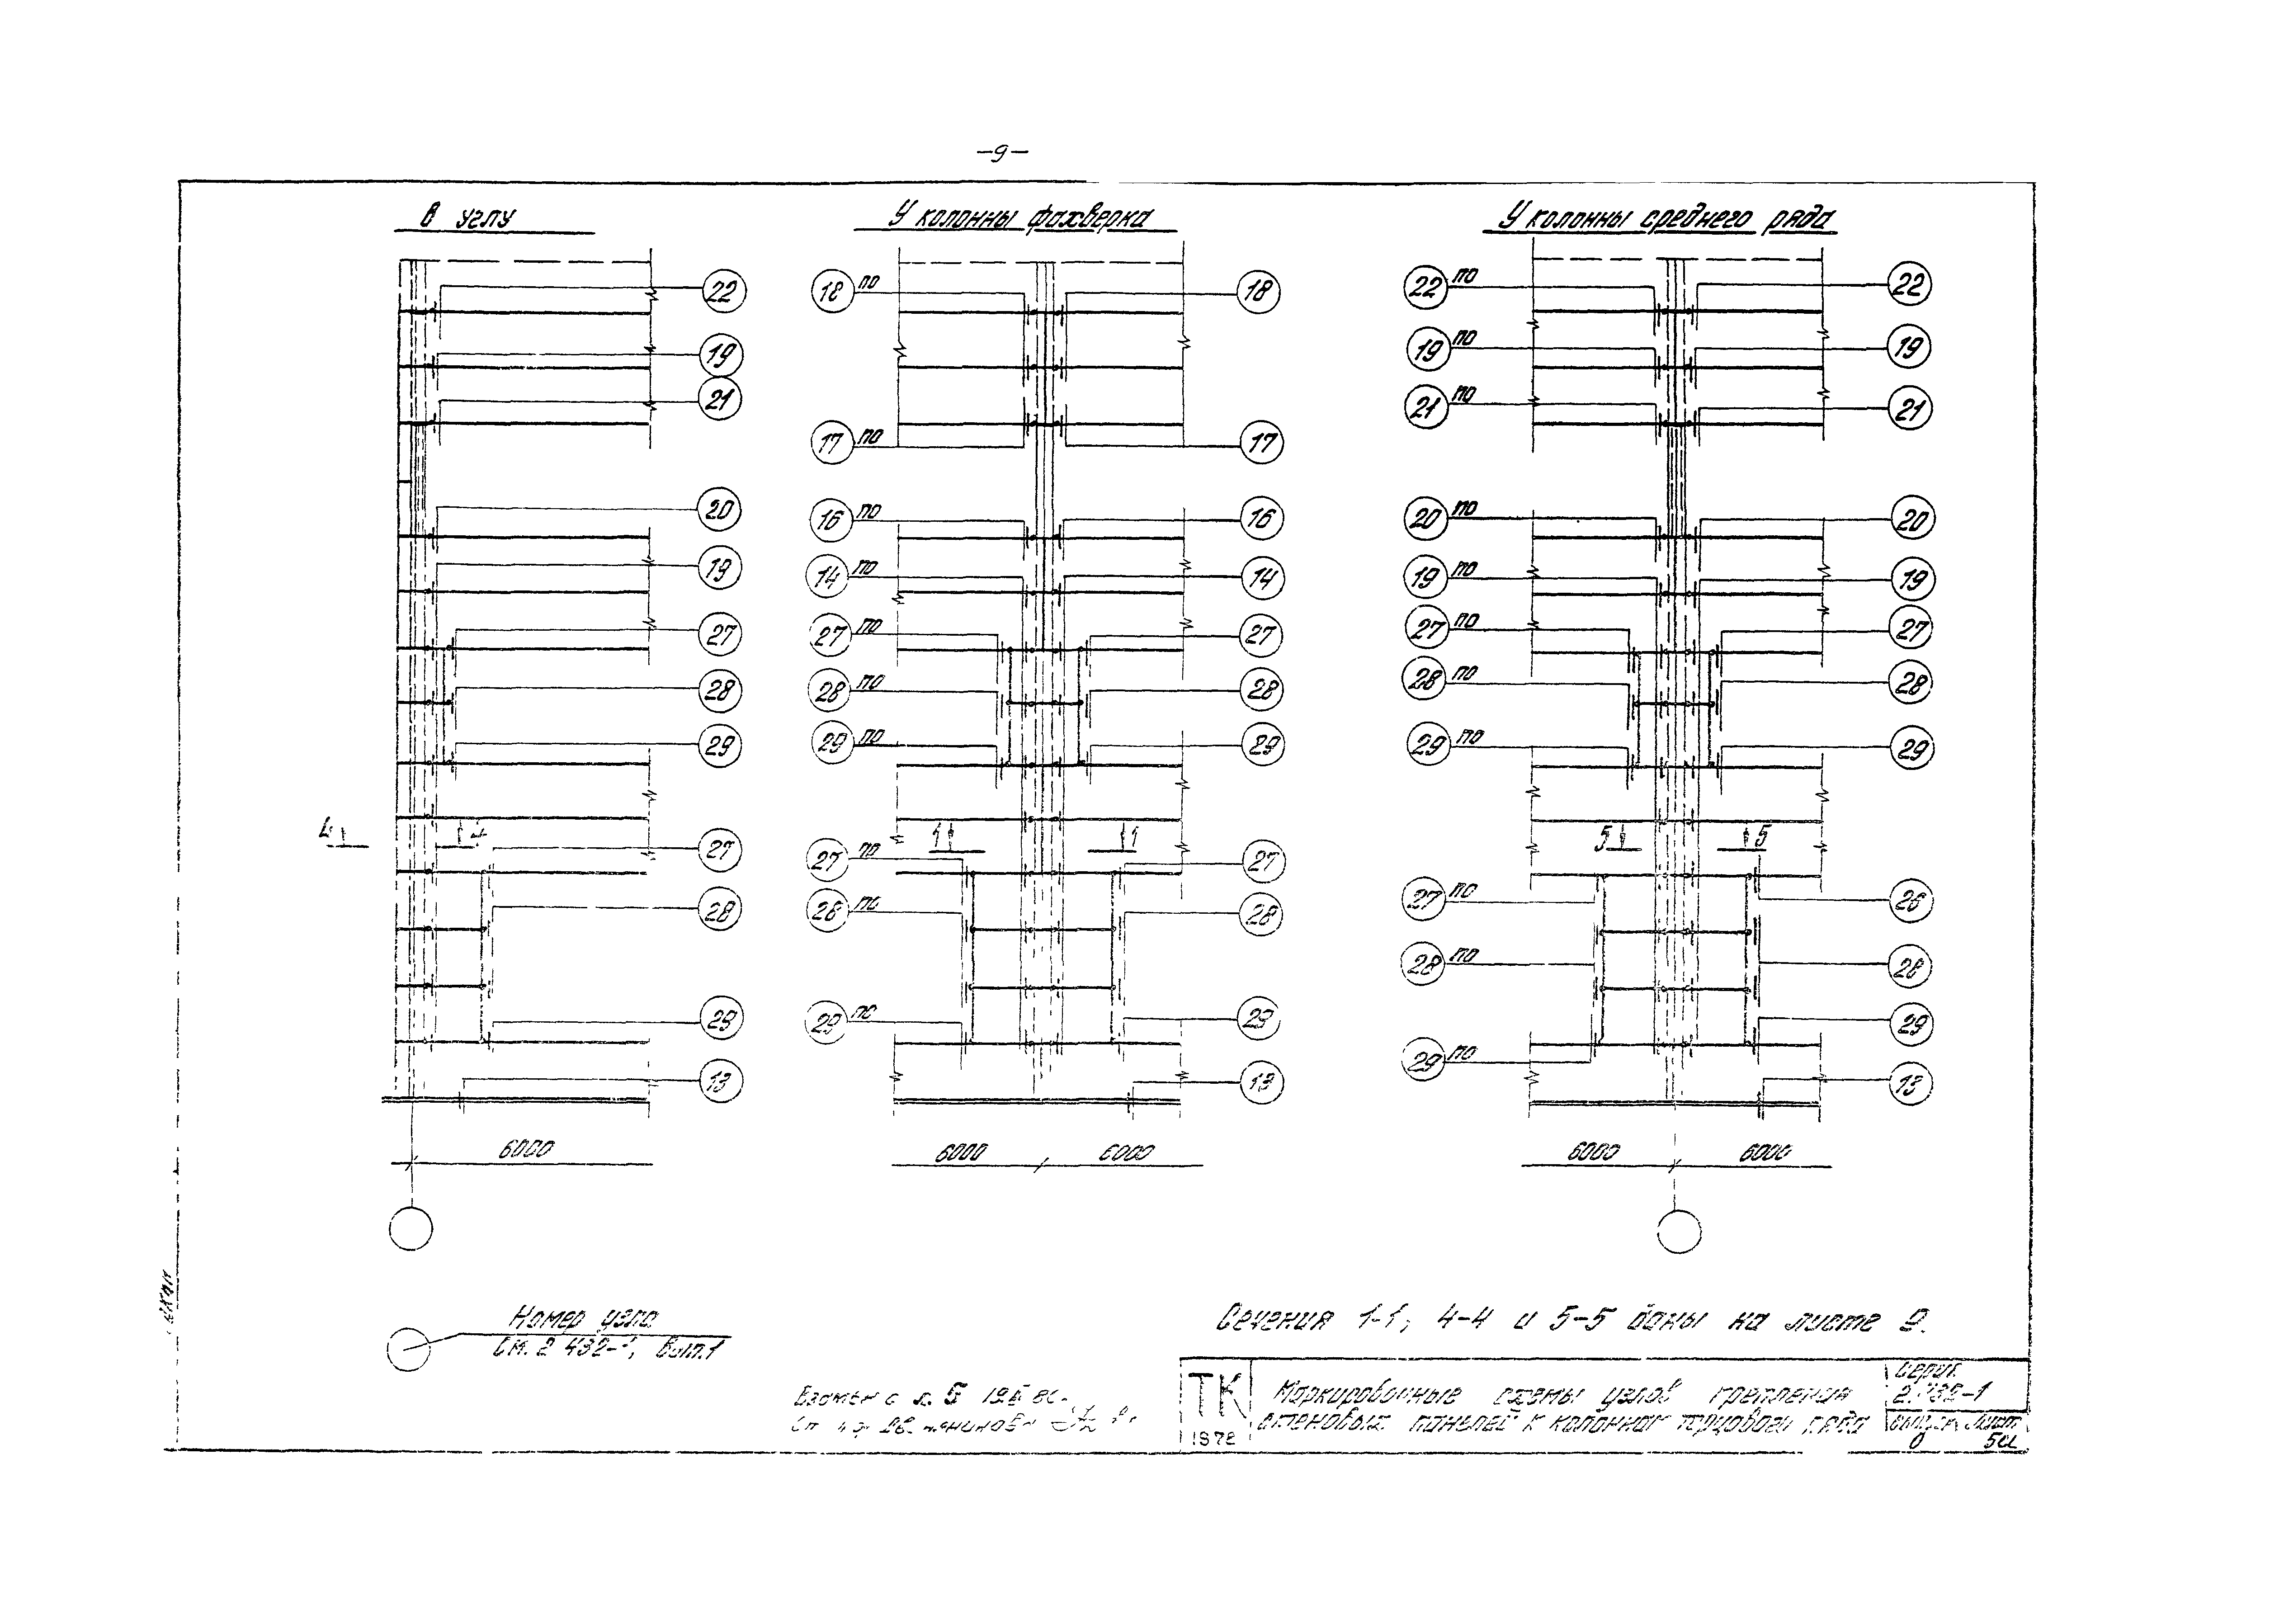 -9-
В углу
У колонны фахверка
У колонны среднего ряда
22
19
21
20
19
27
28
29
4 4
27
28
29
13
6000
18 по 18
17 по 17
16 по 16
14 по 14
27 по 27
28 по 28
29 по 29
1 1
27 по 27
28 по 28
29 по 29
13
6000 6000
22 по 22
19 по 19
21 по 21
20 по 20
19 по 19
27 по 27
28 по 28
29 по 29
5 5
27 по 26
28 по 28
29
29 по
13
6000 6000
Номер узла
См. 2 432-1, вып.1
Сечения 1-1, 4-4 и 5-5 даны на листе 9.
Взамен л. 5
ТК
1978
Маркировочные схемы узлов крепления
стеновых панелей к колоннам торцового ряда
Серия
2.432-1
выпуск лист
0 5а